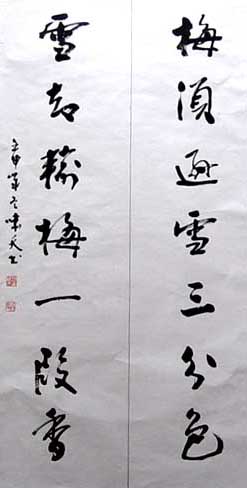 梅須遜雪三分色
雪却輸梅一段香